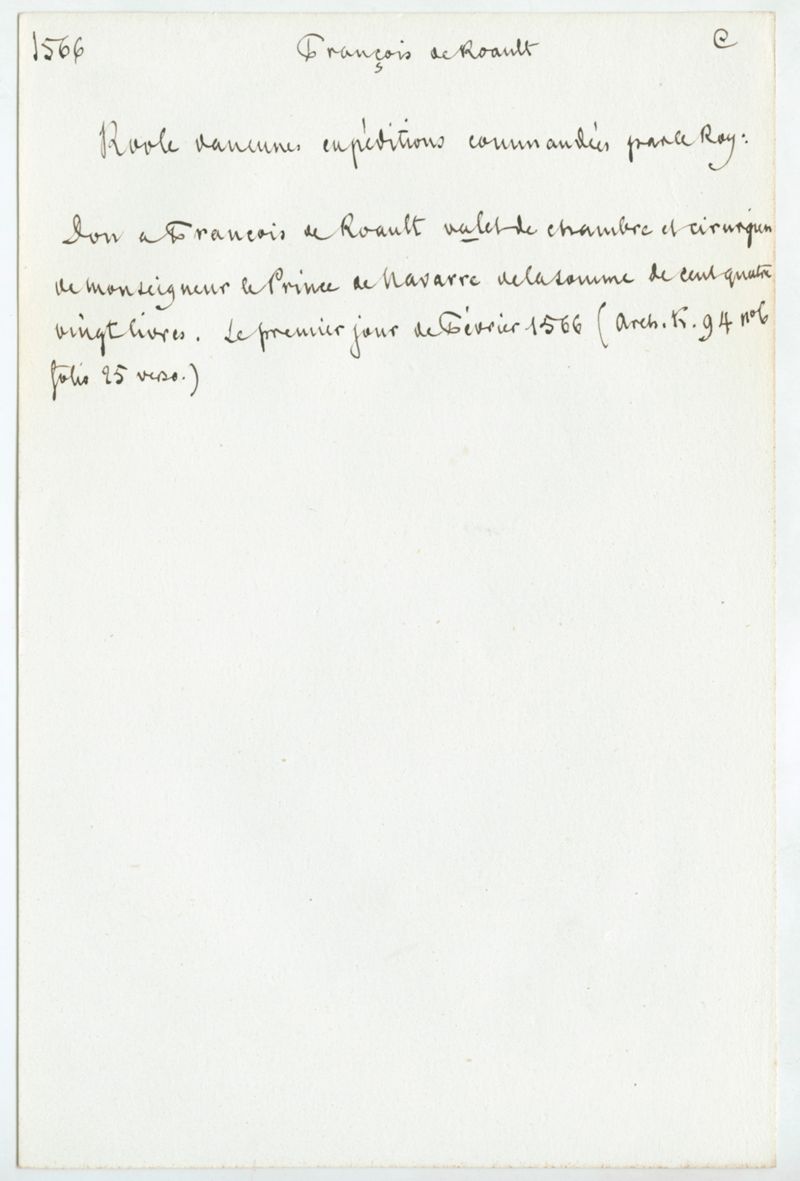 1566 François de Roault C
Roole daucunes expéditions commandées par le Roy:
Don a François de Roault valet de chambre et cirurgien
de monseigneur le Prince de Navarre de la somme de cent quatre
vingt livres. Le premier jour de Février 1566 (Arch. K. 94 nº6
folio 25 verso.)